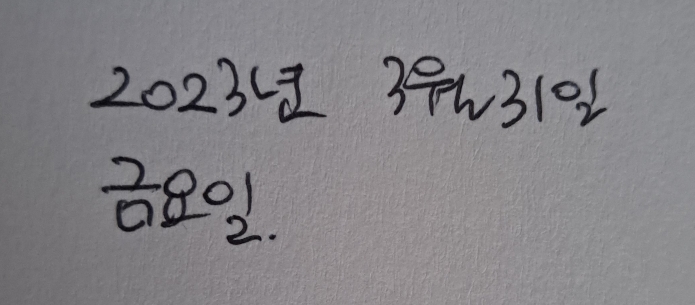 2023년 3월 31일
금요일.